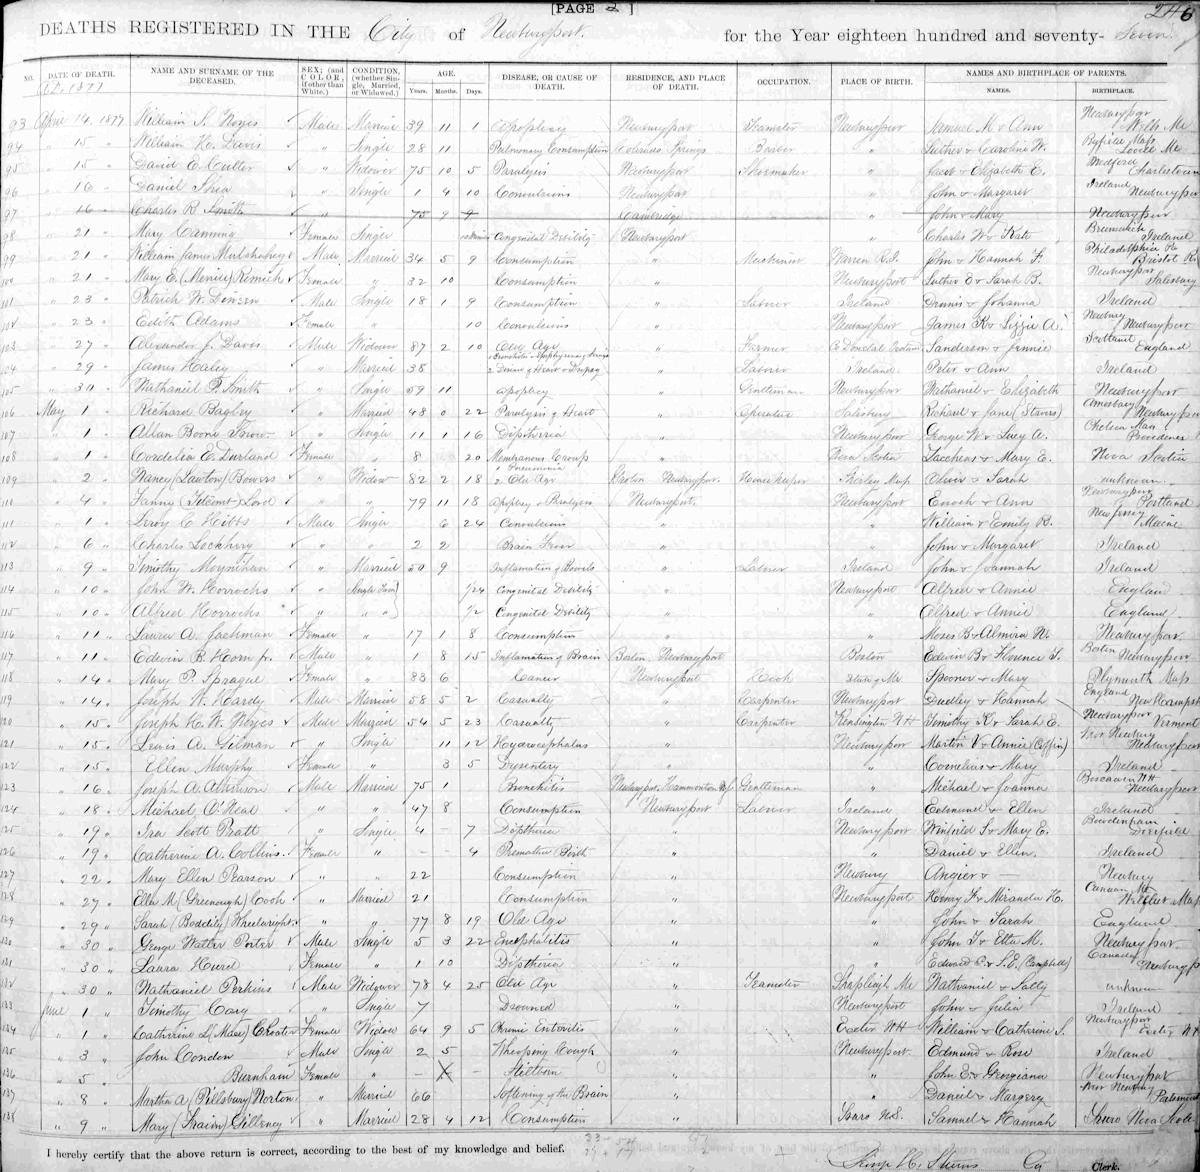 [PAGE 2 ]
246
DEATHS REGISTERED IN THE City of Newburyport. for the Year eighteen hundred and seventy- Seven
NO. DATE OF DEATH. NAME AND SURNAME OF THE DECEASED. SEX; (and COLOR, (other than White.) CONDITION, (whether Single, Married, or Widowed.) AGE. Years. Months. Days. DISEASE, OR CAUSE OF DEATH. RESIDENCE, AND PLACE OF DEATH. OCCUPATION. PLACE OF BIRTH. NAMES AND BIRTHPLACE OF PARENTS. NAMES. BIRTHPLACE.
93 April 14, 1877 William S. Noyes Male Married 39 11 1 Apoplexy Newburyport Teamster Newburyport Samuel M & Ann Newburyport Wells Me
94 " 15 " William H. Davis " Single 28 11 Pulmonary Consumption Colorado Springs Barber " Luther & Caroline W. Byfield Mass Me
95 " 15 " David E. Cutter " Widower 75 10 5 Paralysis Newburyport Shoemaker " Jacob & Elizabeth E. Medford Charlestown
96 " 16 " Daniel Shea " Single 1 4 10 Convulsions Newburyport " John & Margaret Ireland Newburyport
97 " 16 Charles R. Smith " " 75 9 9 Cambridge " John & Mary Newburyport
98 " 21 " Mary Canning Female Single Congenital Debility Newburyport " Charles W & Kate Brunswick Ireland
99 " 21 " William James Male Married 34 5 9 Consumption " Machinist Warren R.I. John & Hannah F. Philadelphia Pa Bristol
100 " 21 " Mary E. (Merrill) Female " 32 10 Consumption " Newburyport Luther E & Sarah B. Newburyport Salisbury
101 " 23 " Patrick W. Male Single 18 1 9 Consumption " Laborer Ireland Dennis & Johanna Ireland
102 " 23 " Edith Adams Female " 10 Convulsions " Newburyport James K & Lizzie A. Newbury Newburyport
103 " 27 " Alexander J. Davis Male Widower 87 2 10 Old Age " Farmer Sanderson & Jennie Scotland England
104 " 29 " James Haley " Married 38 1 Bronchitis 2 Disease of Heart & Dropsy " Laborer Ireland Peter & Ann Ireland
105 " 30 " Nathaniel P. Smith " Single 59 11 Apoplexy " Gentleman Newburyport Nathaniel & Elizabeth Newburyport
106 May 1 " Richard Bagley " Married 48 0 22 Paralysis of Heart " Operative Salisbury Richard & Jane Amesbury Newburyport
107 " 1 " Allan Boone " Single 11 1 16 Diphtheria " Newburyport George W & Lucy A. Chelsea Mass Providence
108 " 1 " Cordelia E. Durland Female " 8 20 Membranous Croup " Nova Scotia Zacchens & Mary E. Nova Scotia
109 " 2 " Nancy (Lawton) Bowers " Widow 82 2 18 1 Pneumonia 2 Old Age Groton Newburyport. Housekeeper Shirley Mass Oliver & Sarah unknown
110 " 4 " Fanny (Titcomb) Lord " " 79 11 18 Apoplexy & Paralysis Newburyport. Newburyport Enoch & Ann Newburyport Portland
111 " 1 " Leroy C Hibbs Male Single 6 24 Convulsions " " William & Emily R. New Jersey Maine
112 " 6 " Charles Lockhery " " 2 2 Brain Fever " " John & Margaret Ireland
113 " 9 " Timothy Moynihan " Married 50 9 Inflamation of Bowels " Laborer Ireland John & Joannah Ireland
114 " 10 " John W. Horrocks " Single Twin 1/24 Congenital Debility " Newburyport Alfred & Annie England
115 " 10 " Alfred Horrocks " " " 1/2 Congenital Debility " " Alfred & Annie England
116 " 11 " Laura A. Jackman Female " 17 1 8 Consumption " " Moses B & Almira N. Newburyport
117 " 11 " Edwin B. Horn jr. Male " 1 8 15 Inflamation of Brain Boston Newburyport Boston Edwin B & Florence T. Boston Newburyport
118 " 14 " Mary P. Sprague Female " 83 6 Cancer Newburyport Cook State of Me Spooner & Mary Plymouth Mass
119 " 14 " Joseph W. Hardy Male Married 58 5 2 Casualty " Carpenter Newburyport Dudley & Hannah England New Hampst
120 " 15 " Joseph H. W. Noyes Male Married 54 5 23 Casualty " Carpenter Kensington NH Timothy K & Sarah E. Newburyport Vermont
121 " 15 " Lewis A. Gilman " Single 11 12 Hydrocephalus " Newburyport Martin V & Annie (Coffin) West Newbury Newburyport
122 " 15 " Ellen Murphy Female " 3 5 Dysentery " " Cornelius & Mary Ireland
123 " 16 " Joseph A. Atkinson Male Married 75 1 Bronchitis Newburyport, Hammonton N.J. Gentleman " Michael & Joanna Boscawen NH Newburyport
124 " 18 " Michael O'Neal " " 47 8 Consumption Newburyport Laborer Ireland Edmund & Ellen Ireland
125 " 19 " Ira Scott Pratt " Single 4 - 7 Diptheria " Newburyport Winfield S & Mary E. Bowdenham Deerfield
126 " 19 " Catherine A. Collins Female " - 4 Premature Birth " " Daniel & Ellen. Ireland
127 " 22 " Mary Ellen Pearson " " 22 Consumption " Newbury Angier & — Newbury
128 " 27 " Ella M (Greenough) Cook " Married 21 Consumption " Newburyport Henry F & Miranda H. Canaan Me Wellfleet Mass
129 " 29 " Sarah (Boddily) Wheelwright " " 77 8 19 Old Age " " John & Sarah England
130 " 30 " George Walter Porter Male Single 5 3 22 Encephalitis " " John T & Etta M. Newburyport
131 " 30 " Laura Hurd Female " 1 10 Diptheria " " Edward C & S.E. (Campbell) Canada Newburyp
132 " 30 " Nathaniel Perkins Male Widower 78 4 25 Old Age " Teamster Shapleigh Me Nathaniel & Sally unknown
133 June 1 " Timothy Cary " Single 7 Drowned " Newburyport John & Julia Ireland
134 " 1 " Catherine L (Mace) Female Widow 64 9 5 Enteritis " Exeter NH William & Catherine S. Newburyport Exeter NH
135 " 3 " John Condon Male Single 2 5 Whooping Cough " Newburyport. Edmund & Rose Ireland
136 " 5 " Burnham Female " - X - Stillborn " " John E. & Georgiana Newburyport
137 " 8 " Martha A (Pillsbury) Norton " Married 66 Softening of the Brain " " Daniel & Margery West Newbury
138 " 9 " Mary (Frain) " Married 28 4 12 Consumption " Truro N.S. Samuel & Hannah Truro Nova Scotia
I hereby certify that the above return is correct, according to the best of my knowledge and belief.
Geo. H. Stevens City Clerk.